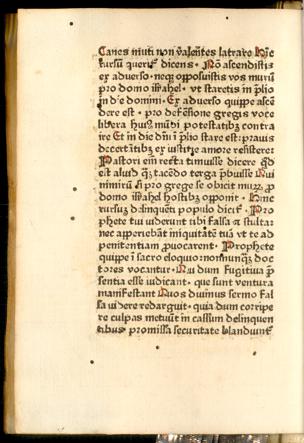 Canes muti non valentes latrare Hīc
rursū querit᷑ dicens · Nō ascendistis
ex aduerso · neqꝫ opposuistis vos murū
pro domo israhel · vt staretis in p̄lio
in die domini · Ex aduerso quippe ascē
dere est · pro defensione gregis voce
libera huiꝰ mūdi potestatibꝫ contra
ire Et in die dn̄i ī p̄lio stare est : prauis
decertātibꝫ ex iusticie amore resistere
Pastori em̄ recta timuisse dicere qd̄
est aliud qͣꝫ tacēdo terga p̄buisse Qui
nimirū si pro grege se obicit murꝫ p̄
domo israhel hostibꝫ opponit · Hinc
rursꝫ delinquēti populo dicit᷑ · Pro
phete tui viderunt tibi falsa ⁊ stulta :
nec apperiebāt iniquitatē tuā vt te ad
penitentiam ꝓuocarent · Prophete
quippe ī sacro eloquio nonnunqꝫ doc
tores vocantur · Qui dum fugitiua p̄
sentia esse iudicant · que sunt ventura
manifestant Quos diuinus sermo fal
sa videre redarguit · quia dum corripe
re culpas metuūt in cassum delinquen
tibus promissa securitate blandiunt᷑